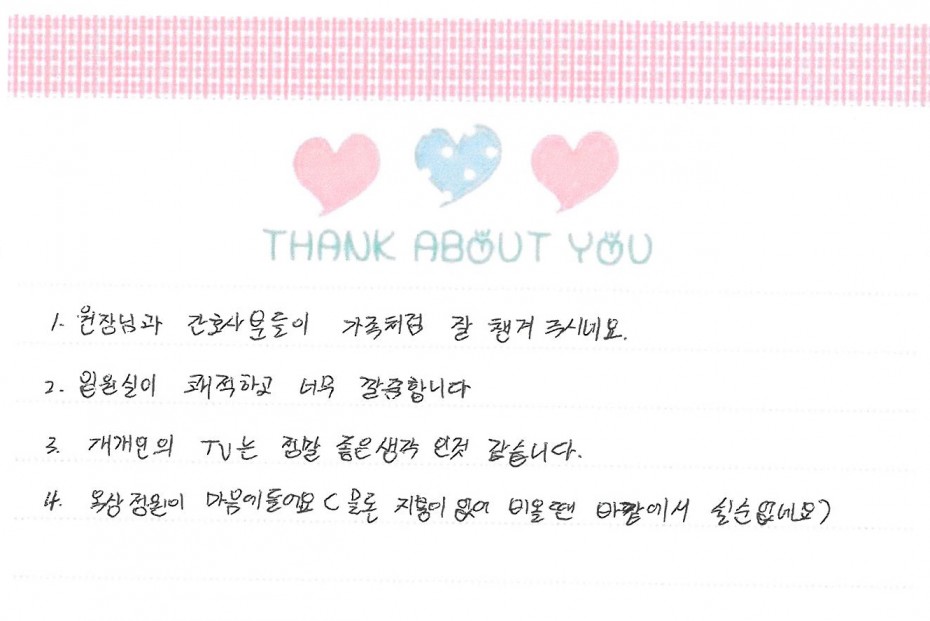 THANK ABOUT YOU
1. 원장님과 간호사분들이 가족처럼 잘 챙겨 주시네요.
2. 입원실이 쾌적하고 너무 깔끔합니다
3. 개개인의 TV는 정말 좋은생각 인것 같습니다.
4. 옥상정원이 마음에들어요 (물론 지붕이 없어 비올땐 바깥에서 쉴순없네요)